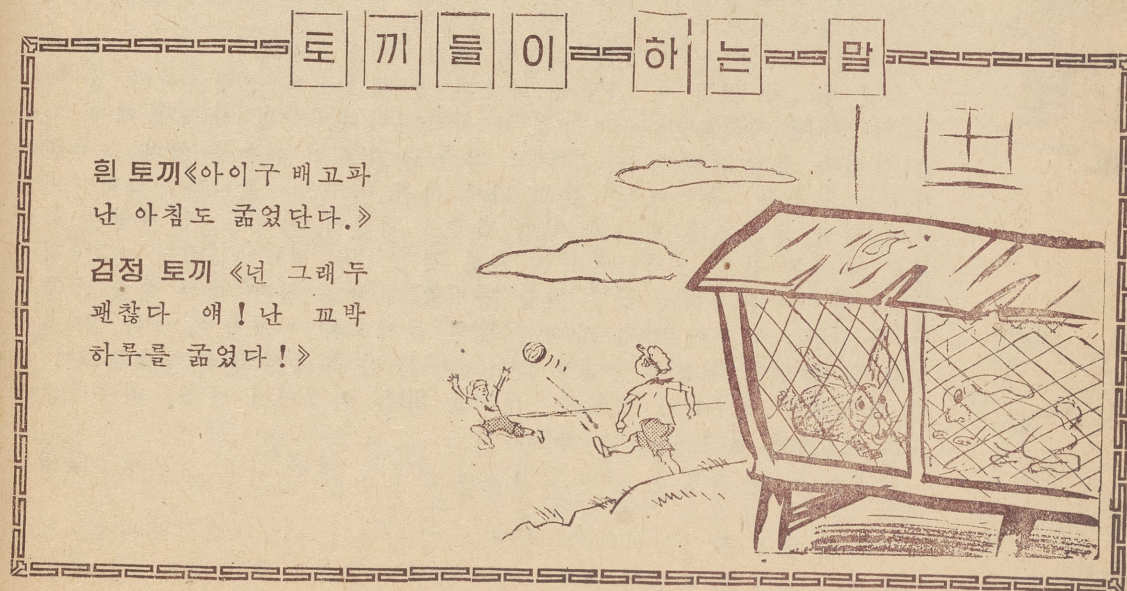 토끼들이 하는 말
흰 토끼《아이구 배고파
난 아침도 굶었단다.》
검정 토끼 《넌 그래두
괜찮다 얘! 난 꼬박
하루를 굶었다!》